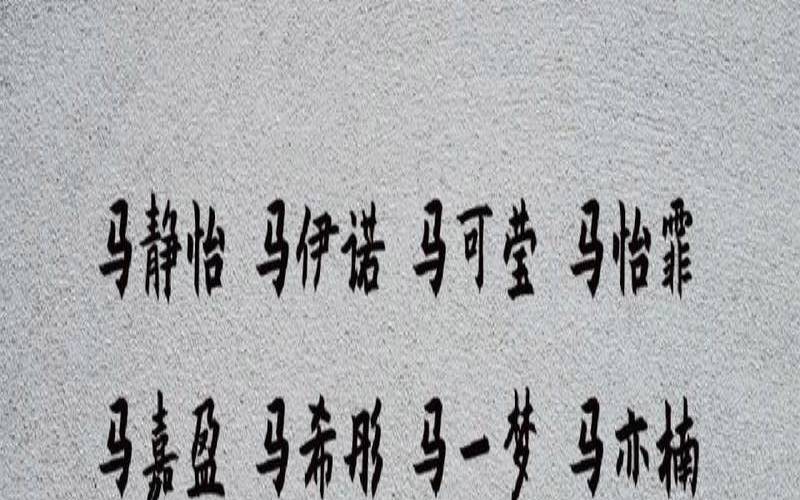 马静怡 马伊诺 马可莹 马怡霏
马嘉盈 马希彤 马一梦 马亦楠